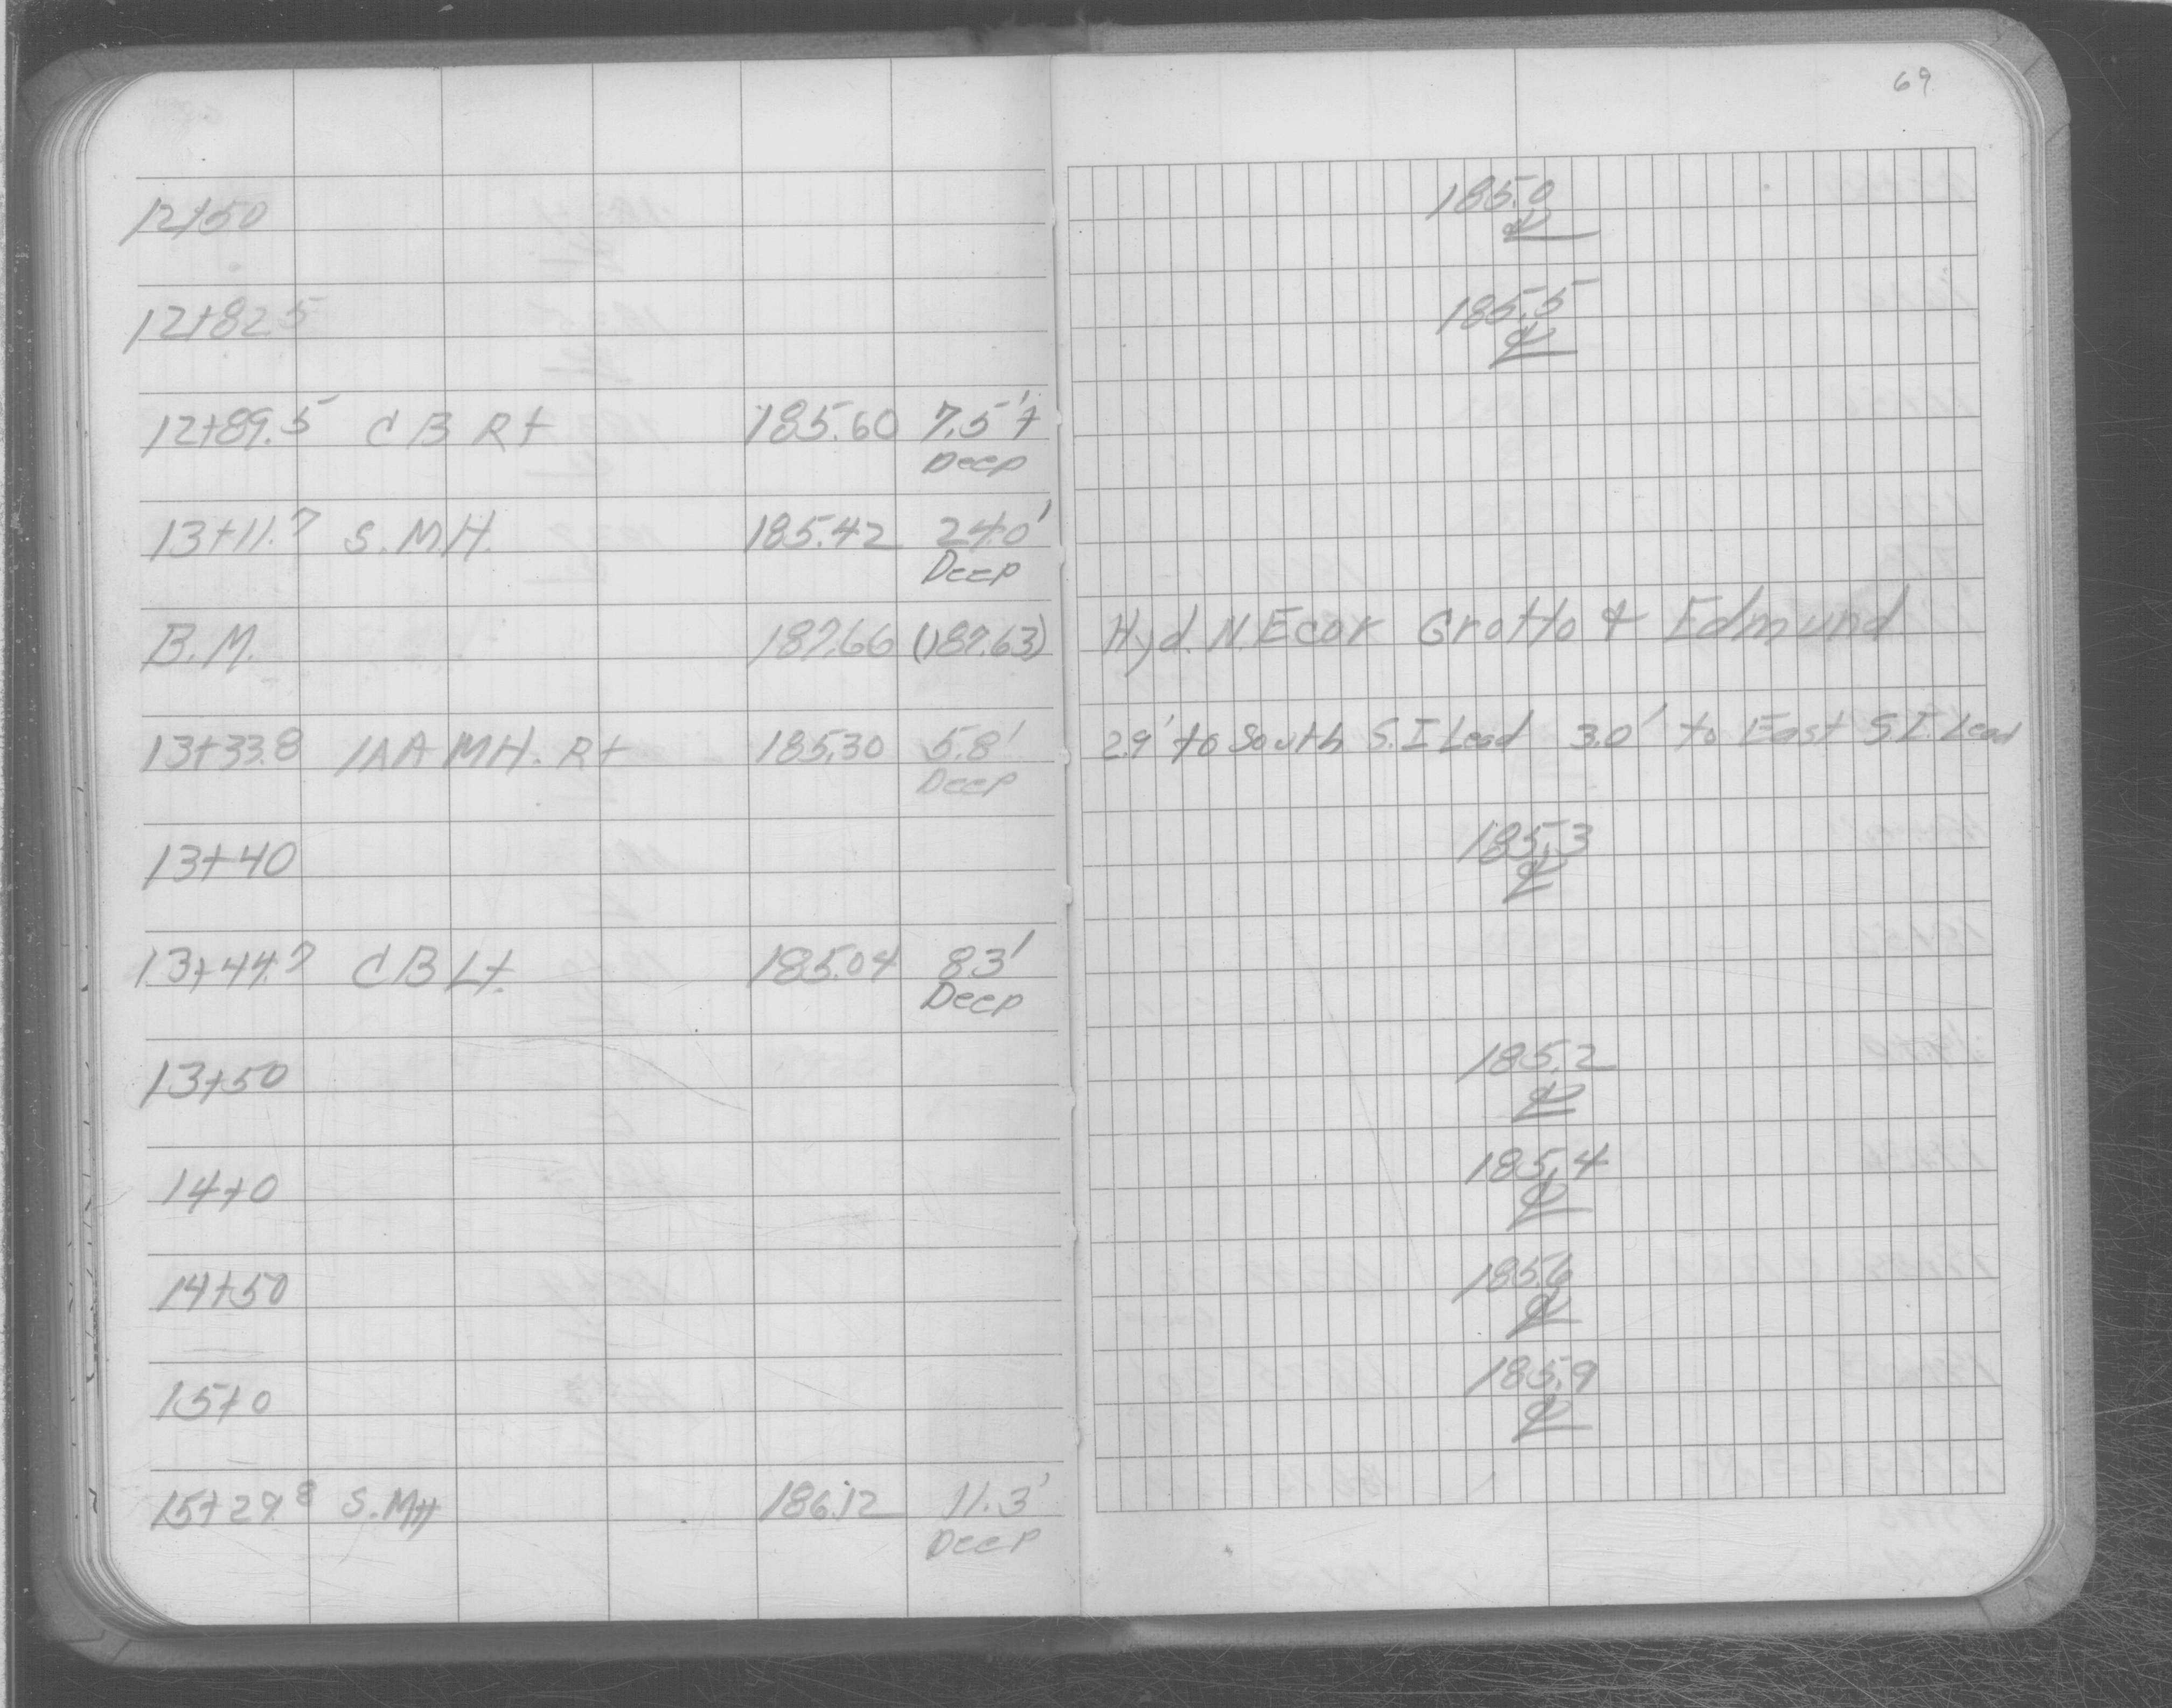 69
12+50 185.0 ℄
12+82.5 185.5 ℄
12+89.5 C B Rt 185.60 7.5'±
Deep
13+11.7 S.M.H. 185.42 24.0'
Deep
B.M. 187.66 (187.63) Hyd. N.Ecor Grotto & Edmund
13+33.8 1AA MH. Rt 185.30 5.8' 2.9' to South S.I Lead 3.0' to East S.I. Lead
Deep
13+40 185.3 ℄
13+44.7 C B Lt. 185.04 8.3'
Deep
13+50 185.2 ℄
14+0 185.4 ℄
14+50 185.6 ℄
15+0 185.9 ℄
15+29.8 S.MH 186.12 11.3'
Deep